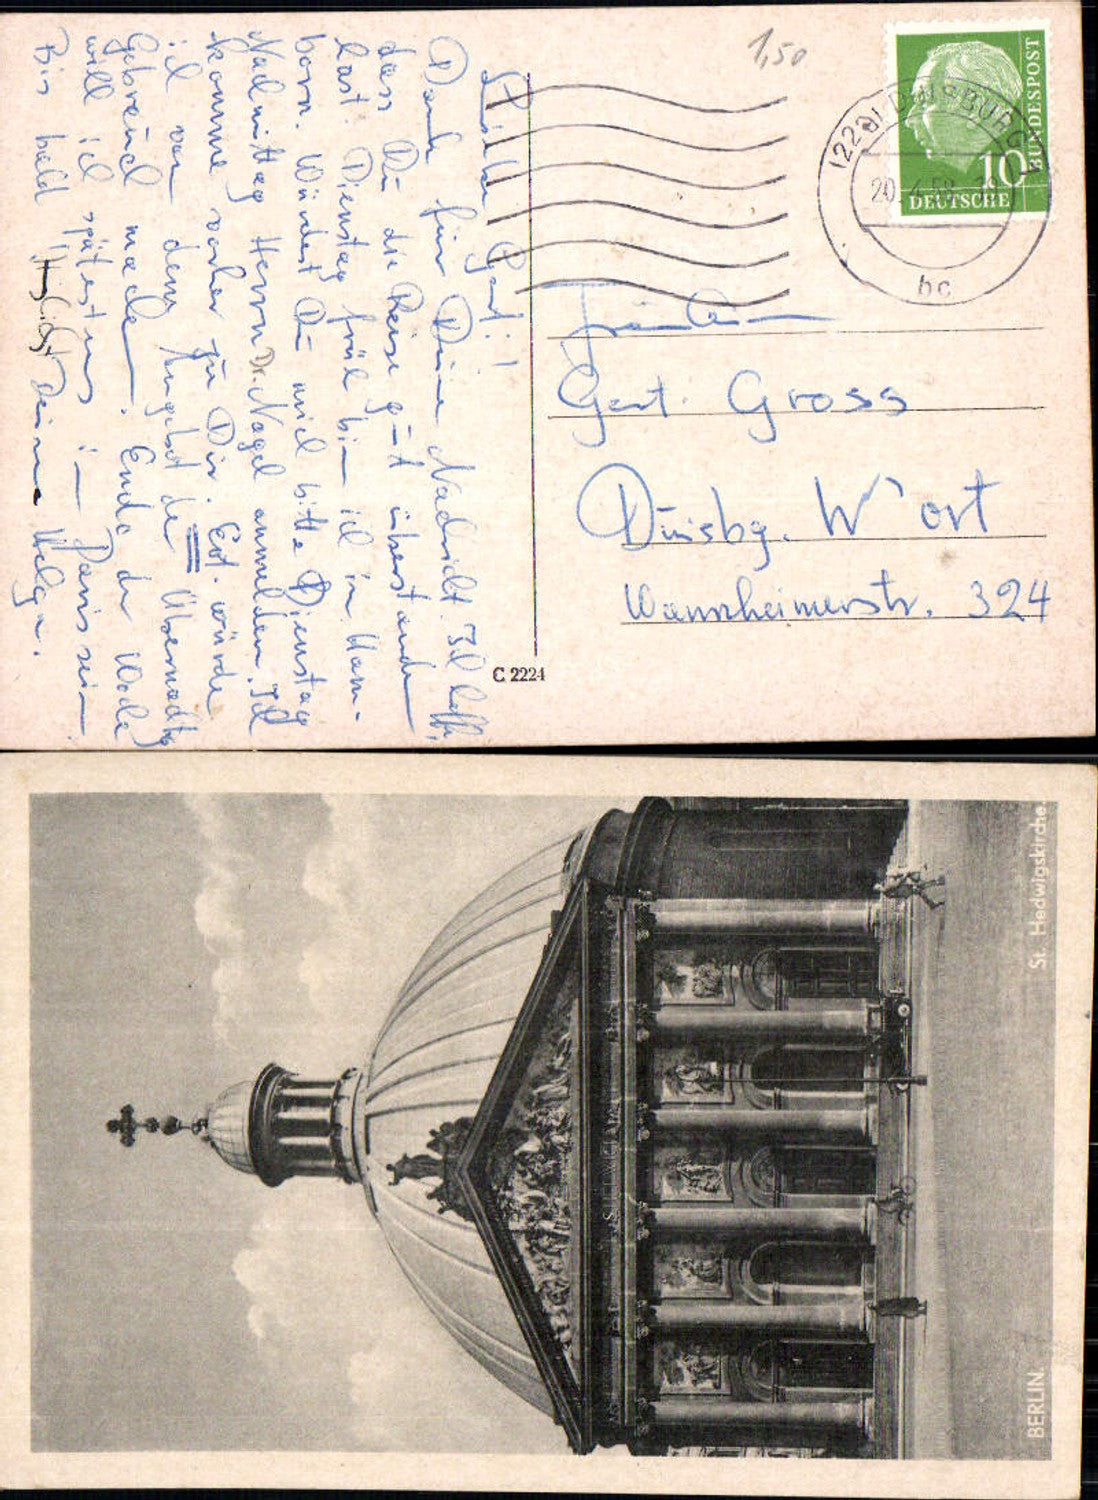 1,50
DEUTSCHE
BUNDESPOST
10
(22a) DUISBURG 1
20.4.58
bc
Liebe Gert!
Danke für Deine Nachricht. Ich hoffe,
dass Du die Reise gut überstanden
hast. Dienstag früh bin ich in Ham-
born. Würdest Du mich bitte Dienstag
Nachmittag Herrn Dr. Nagel anmelden. Ich
komme vorher zu Dir. Evt. würde
ich von dem Angebot der Übernachtg
Gebrauch machen. Ende der Woche
will ich spätestens in Paris sein
Bis bald Deine Helga.
Fräulein
Gert. Gross
Duisbg. W'ort
Wannheimerstr. 324
C 2224
BERLIN.
St. Hedwigskirche